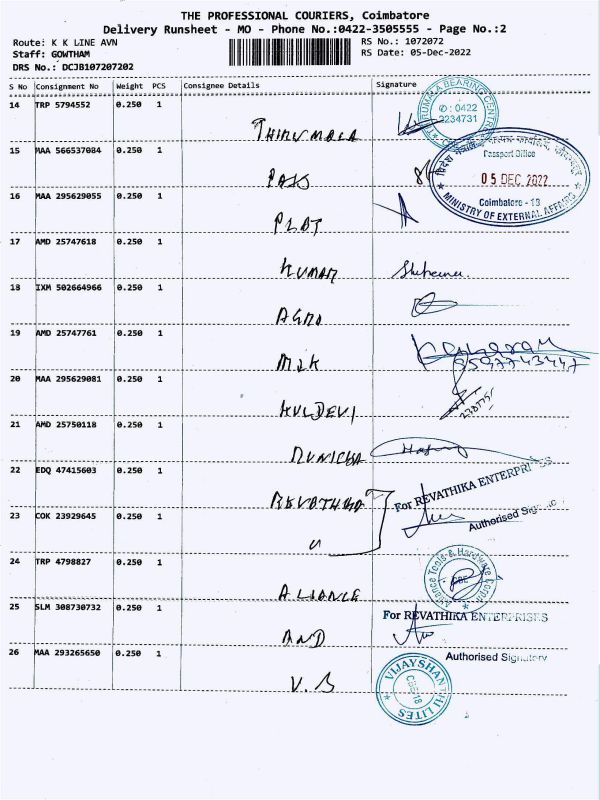 THE PROFESSIONAL COURIERS, Coimbatore
Delivery Runsheet - MO - Phone No.:0422-3505555 - Page No.:2
Route: K K LINE AVN
RS No.: 1072072
Staff: GOWTHAM
RS Date: 05-Dec-2022
DRS No.: DCJB107207202
S No Consignment No Weight PCS Consignee Details Signature
14 TRP 5794552 0.250 1
THIRUMALA
TIRUMALA BEARING CENTRE
✆ : 0422
2234731
15 MAA 566537084 0.250 1
PASS
विदेश मंत्रालय
Passport Office
05 DEC 2022
Coimbatore - 18
MINISTRY OF EXTERNAL AFFAIRS
16 MAA 295629055 0.250 1
PLOT
17 AMD 25747618 0.250 1
KUMAR
18 IXM 502664966 0.250 1
AGRO
19 AMD 25747761 0.250 1
20 MAA 295629081 0.250 1
KULDEVI
21 AMD 25750118 0.250 1
22 EDQ 47415603 0.250 1
For REVATHIKA ENTERPRISES
Authorised Sig
23 COK 23929645 0.250 1
24 TRP 4798827 0.250 1
ALLIANCE
Alliance Tools & Hardware Corpn
CBE
25 SLM 308730732 0.250 1
AND
For REVATHIKA ENTERPRISES
Authorised Signatory
26 MAA 293265650 0.250 1
V.B
VIJAYSHANTHI LITES
CBE-18